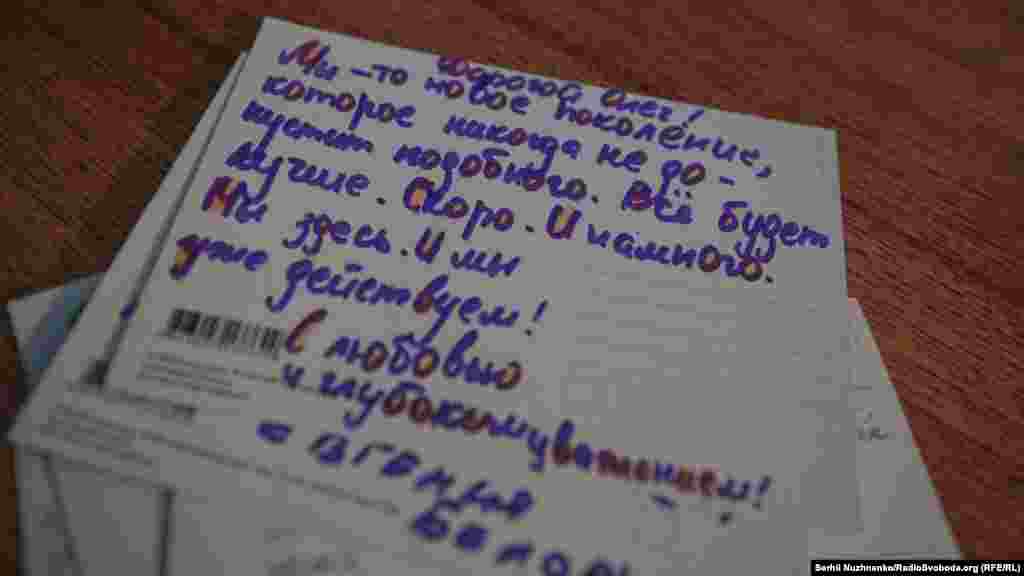 Дорогой Олег!
Мы - то новое поколение,
которое никогда не до-
пустит подобного. Всё будет
лучше. Скоро. И намного.
Мы здесь. И мы
уже действуем!
С любовью
и глубоким уважением!
Serhii Nuzhnenko/RadioSvoboda.org (RFE/RL)